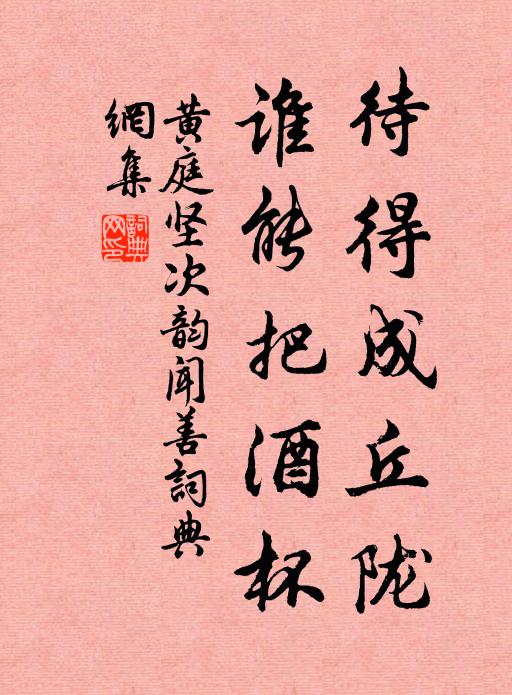 待得成丘陇
谁能把酒杯
黄庭坚次韵闻善詞典
網集
詞典网印